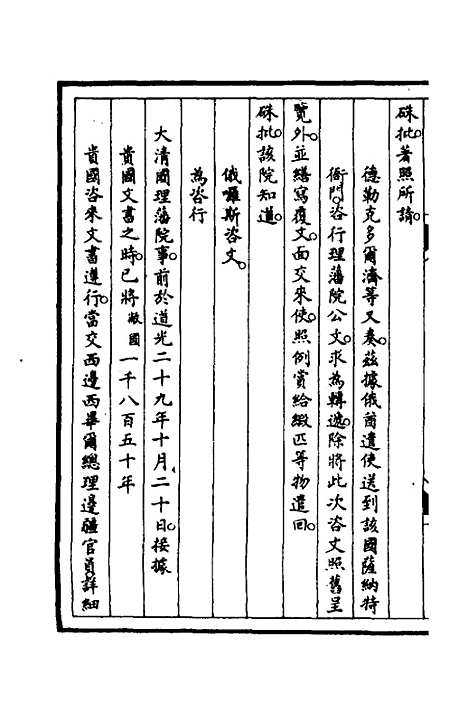 硃批。著照所請。
德勒克多爾濟等又奏。茲據俄酋遣使送到該國薩納特
衙門。咨行理藩院公文。求為轉遞。除將此次咨文照舊呈
覽外。並繕寫覆文。面交來使。照例賞給緞匹等物遣回。
硃批。該院知道。
俄囉斯咨文。
為咨行
大清國理藩院事。前於道光二十九年十月二十日。接據
貴國文書之時。已將敝國一千八百五十年
貴國咨來文書遵行。當交西邊西畢爾總理邊疆官員詳細